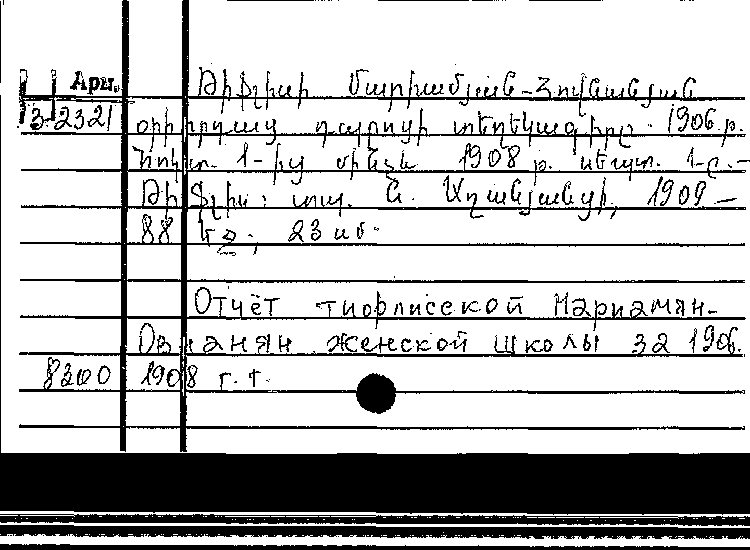 Арм. Թիֆլիսի Մարիամյան-Հովնանյան
3-2321 օրիորդաց դպրոցի տեղեկագիրը 1906 թ.
հոկտ. 1-ից մինչև 1908 թ. սեպտ. 1-ը.—
Թիֆլիս: տպ. Ն. Աղանյանցի, 1909 —
88 էջ; 23 սմ.
Отчёт тифлисской Мариамян-
Овнанян женской школы за 1906.
8200 1908 г.г.